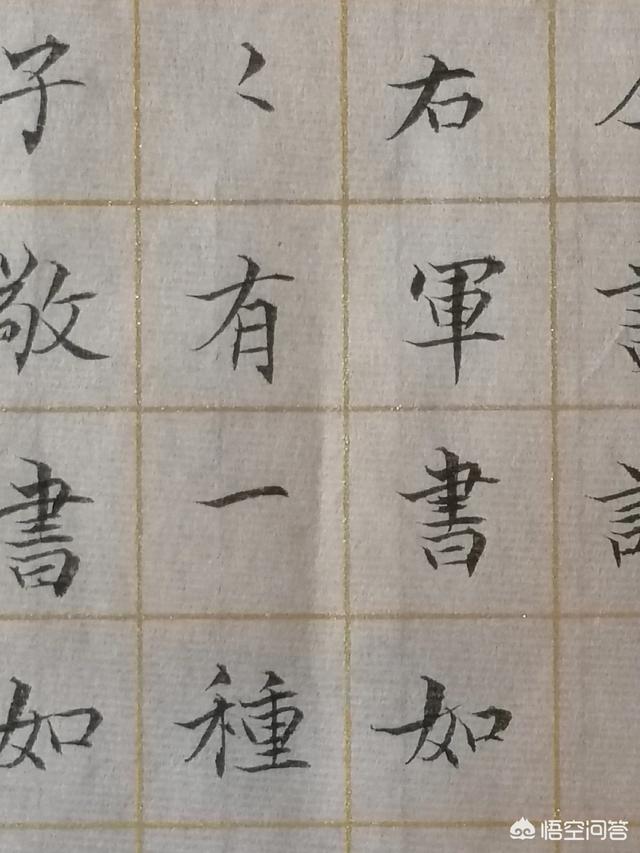 右軍書如
〻有一種
子敬書如
悟空问答